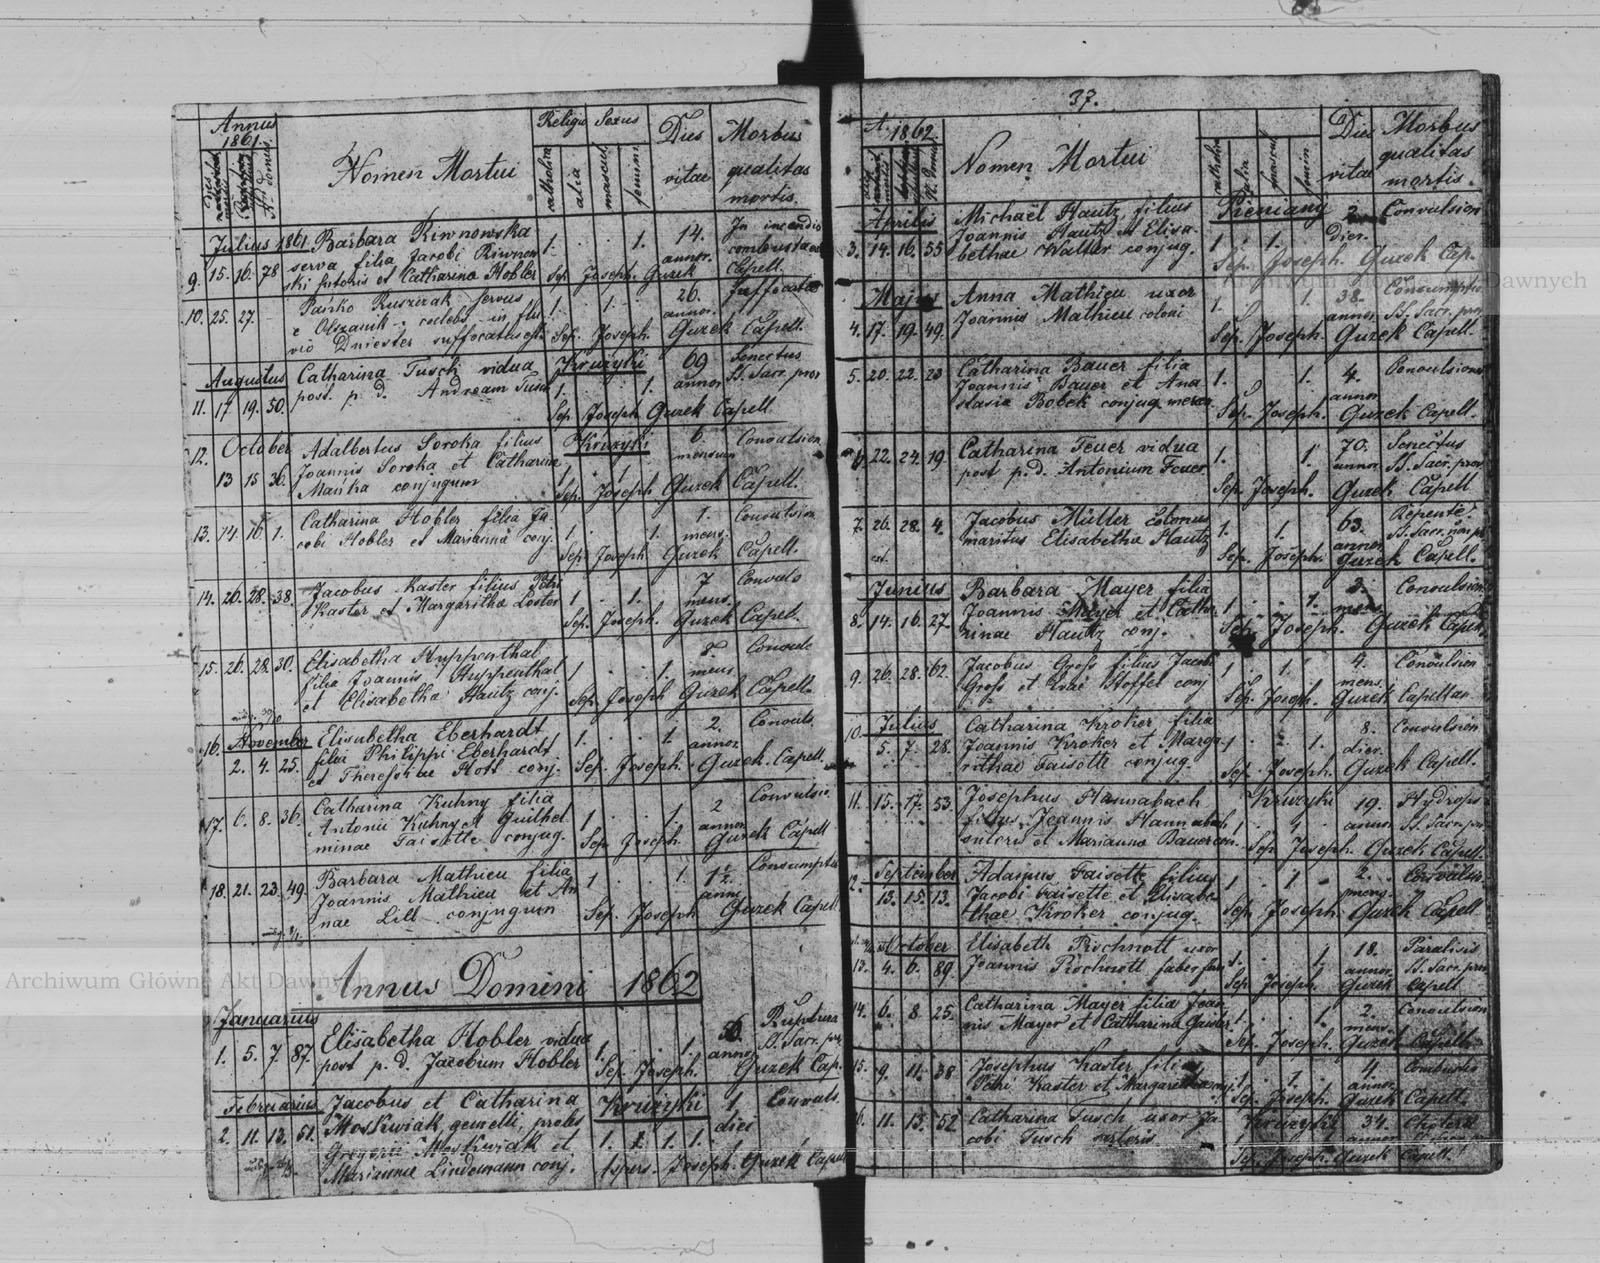 Annus
1861.
Nomen Mortui
Religio Sexus
catholica
alia
mascul.
femini
Dies
vitae
Morbus
qualitas
mortis.
Julius 1861
9. 15. 16. 78
Barbara Riwnowska
serva filia Jacobi Riwnow
ski et Catharina Hobler
1. 1.
14.
annor.
In incendio
combusta
Sep. Joseph Guzek Capell.
10. 25. 27.
Pańko Ruszczak servus
e Olszanik in flu
vio Dniester suffocatus
1. 1.
26.
annor.
Suffocatio
Sep. Joseph. Guzek Capell.
Augustus
11. 17. 19. 50.
Catharina Tusch vidua
post. p. d. Andream Tusch
Kruzyki
1. 1.
69
annor
Senectus
SS. Sacr. prov
Sep. Joseph Guzek Capell
12. October
13 15 36.
Adalbertus Soroka filius
Joannis Soroka et Catharina
Mańka conjugum
Kruzyki
1. 1.
6.
mensium
Convulsion
Sep. Joseph Guzek Capell.
13. 14. 16. 1.
Catharina Hobler filia Ja
cobi Hobler et Marianna conj.
1. 1.
1.
mens.
Convulsion
Sep. Joseph Guzek Capell.
14. 26. 28. 38.
Jacobus Kaster filius Petri
Kaster et Margaritha
1 1.
7
mens.
Convuls
Sep. Joseph. Guzek Capell.
15. 26. 28. 30.
Elisabetha Huppenthal
filia Joannis Huppenthal
et Elisabetha Hautz conj.
1 1.
8.
mens
Convuls
Sep. Joseph Guzek Capell.
16. November
2. 4. 25.
Elisabetha Eberhardt
filia Philippi Eberhardt
et conj.
1. 1.
2.
annor.
Convuls.
Sep. Joseph. Guzek. Capell.
17. 6. 8. 36.
Catharina Kuhny filia
Antonii Kuhny et Guilhel
minae Faisette conjug.
1 1.
2
annor
Convulsio.
Sep. Joseph Guzek Capell
18. 21. 23. 49.
Barbara Mathieu filia
Joannis Mathieu et An
nae Lill conjugum
1 1
1½
anni
Consumptio
Sep. Joseph Guzek Capell.
Annus Domini 1862
Januarius
1. 5. 7. 87.
Elisabetha Hobler vidua
post p. d. Jacobum Hobler
1. 1.
56.
annor
Ruptura
SS. Sacr. prov
Sep. Joseph. Guzek Cap.
Februarius
2. 11. 13. 51.
Jacobus et Catharina
Moskwiak, gemelli, proles
Gregorii Moskwiak et
Marianna Lindemann conj.
Kruzyki
1. 1. 1. 1.
1
diei
Convuls.
Aspers. Joseph. Guzek Capell
37.
A. 1862.
Nomen Mortui
catholica
alia
mascul
femin
Dies
vitae
Morbus
qualitas
mortis.
Aprilis
3. 14. 16. 55
Michaël Hautz, filius
Joannis Hautz et Elisa-
bethae Walter conjug.
Pieniany
1 1.
2
dier.
Convulsion
Sep. Joseph. Guzek Cap.
Majus
4. 17. 19. 49.
Anna Mathieu uxor
Joannis Mathieu coloni
1. 1.
38.
annor.
Consumptio
SS. Sacr. prov
Sep. Joseph. Guzek Capell.
5. 20. 22. 23
Catharina Bauer filia
Joannis Bauer et Ana
stasia Bobek conjug.
1. 1.
4.
annor
Convulsion
Sep. Joseph. Guzek Capell.
6. 22. 24. 19
Catharina Feuer vidua
post p. d. Antonium Feuer
1. 1.
70.
annor.
Senectus
SS. Sacr. prov.
Sep. Joseph. Guzek Capell
7. 26. 28. 4.
Jacobus Müller colonus
maritus Elisabetha Hautz
1. 1.
63.
annor
Repente.
Sep. Joseph. Guzek Capell.
Junius
8. 14. 16. 27.
Barbara Mayer filia
Joannis Mayer et Catha
rinae Hautz conj.
1. 1.
3.
mens.
Convulsion
Sep. Joseph. Guzek Capell.
9. 26. 28. 62.
Jacobus Groß filius Jacobi
Groß et Stoffel conj
1 1.
4.
mens.
Convulsion
Sep. Joseph. Guzek Capellan
10. Julius
5. 7. 28.
Catharina Kroker filia
Joannis Kroker et Marga
rithae Faisette conjug.
1. 1.
8.
dier.
Convulsion
Sep. Joseph. Guzek Capell.
11. 15. 17. 53.
Josephus Hannabach
filius Joannis Hannabach
et Marianna Bauer con.
Kruzyki
1. 1.
19.
annor
Hydrops
SS. Sacr. pr.
Sep. Joseph. Guzek Capell.
12. September
13. 15. 13.
Adamus Faisette filius
Jacobi Faisette et Elisabe-
thae Kroker conjug.
1. 1
2.
mens.
Convulsio.
Sep. Joseph. Guzek Capell
October
13. 4. 6. 89.
Elisabeth Pischnott uxor
Joannis Pischnott faber
1. 1
18.
annor.
Paralisis
SS. Sacr. prov
Sep. Joseph. Guzek Capell
14. 6. 8. 25.
Catharina Mayer filia Joan
nis Mayer et Catharina Gaisler
1. 1.
2.
mens.
Convulsion
Sep. Joseph. Guzek Capell.
15. 9. 11. 38
Josephus Kaster filius
Petri Kaster et Margaritha
1. 1.
4.
annor
Combustio
Sep. Joseph. Guzek Capell.
16. 11. 13. 52
Catharina Tusch uxor Ja
cobi Tusch sartoris
Kruzyki
1 1
34.
annor
Cholera
Sep. Joseph. Guzek Capell.
Archiwum Główne Akt Dawnych
Archiwum Główne Akt Dawnych